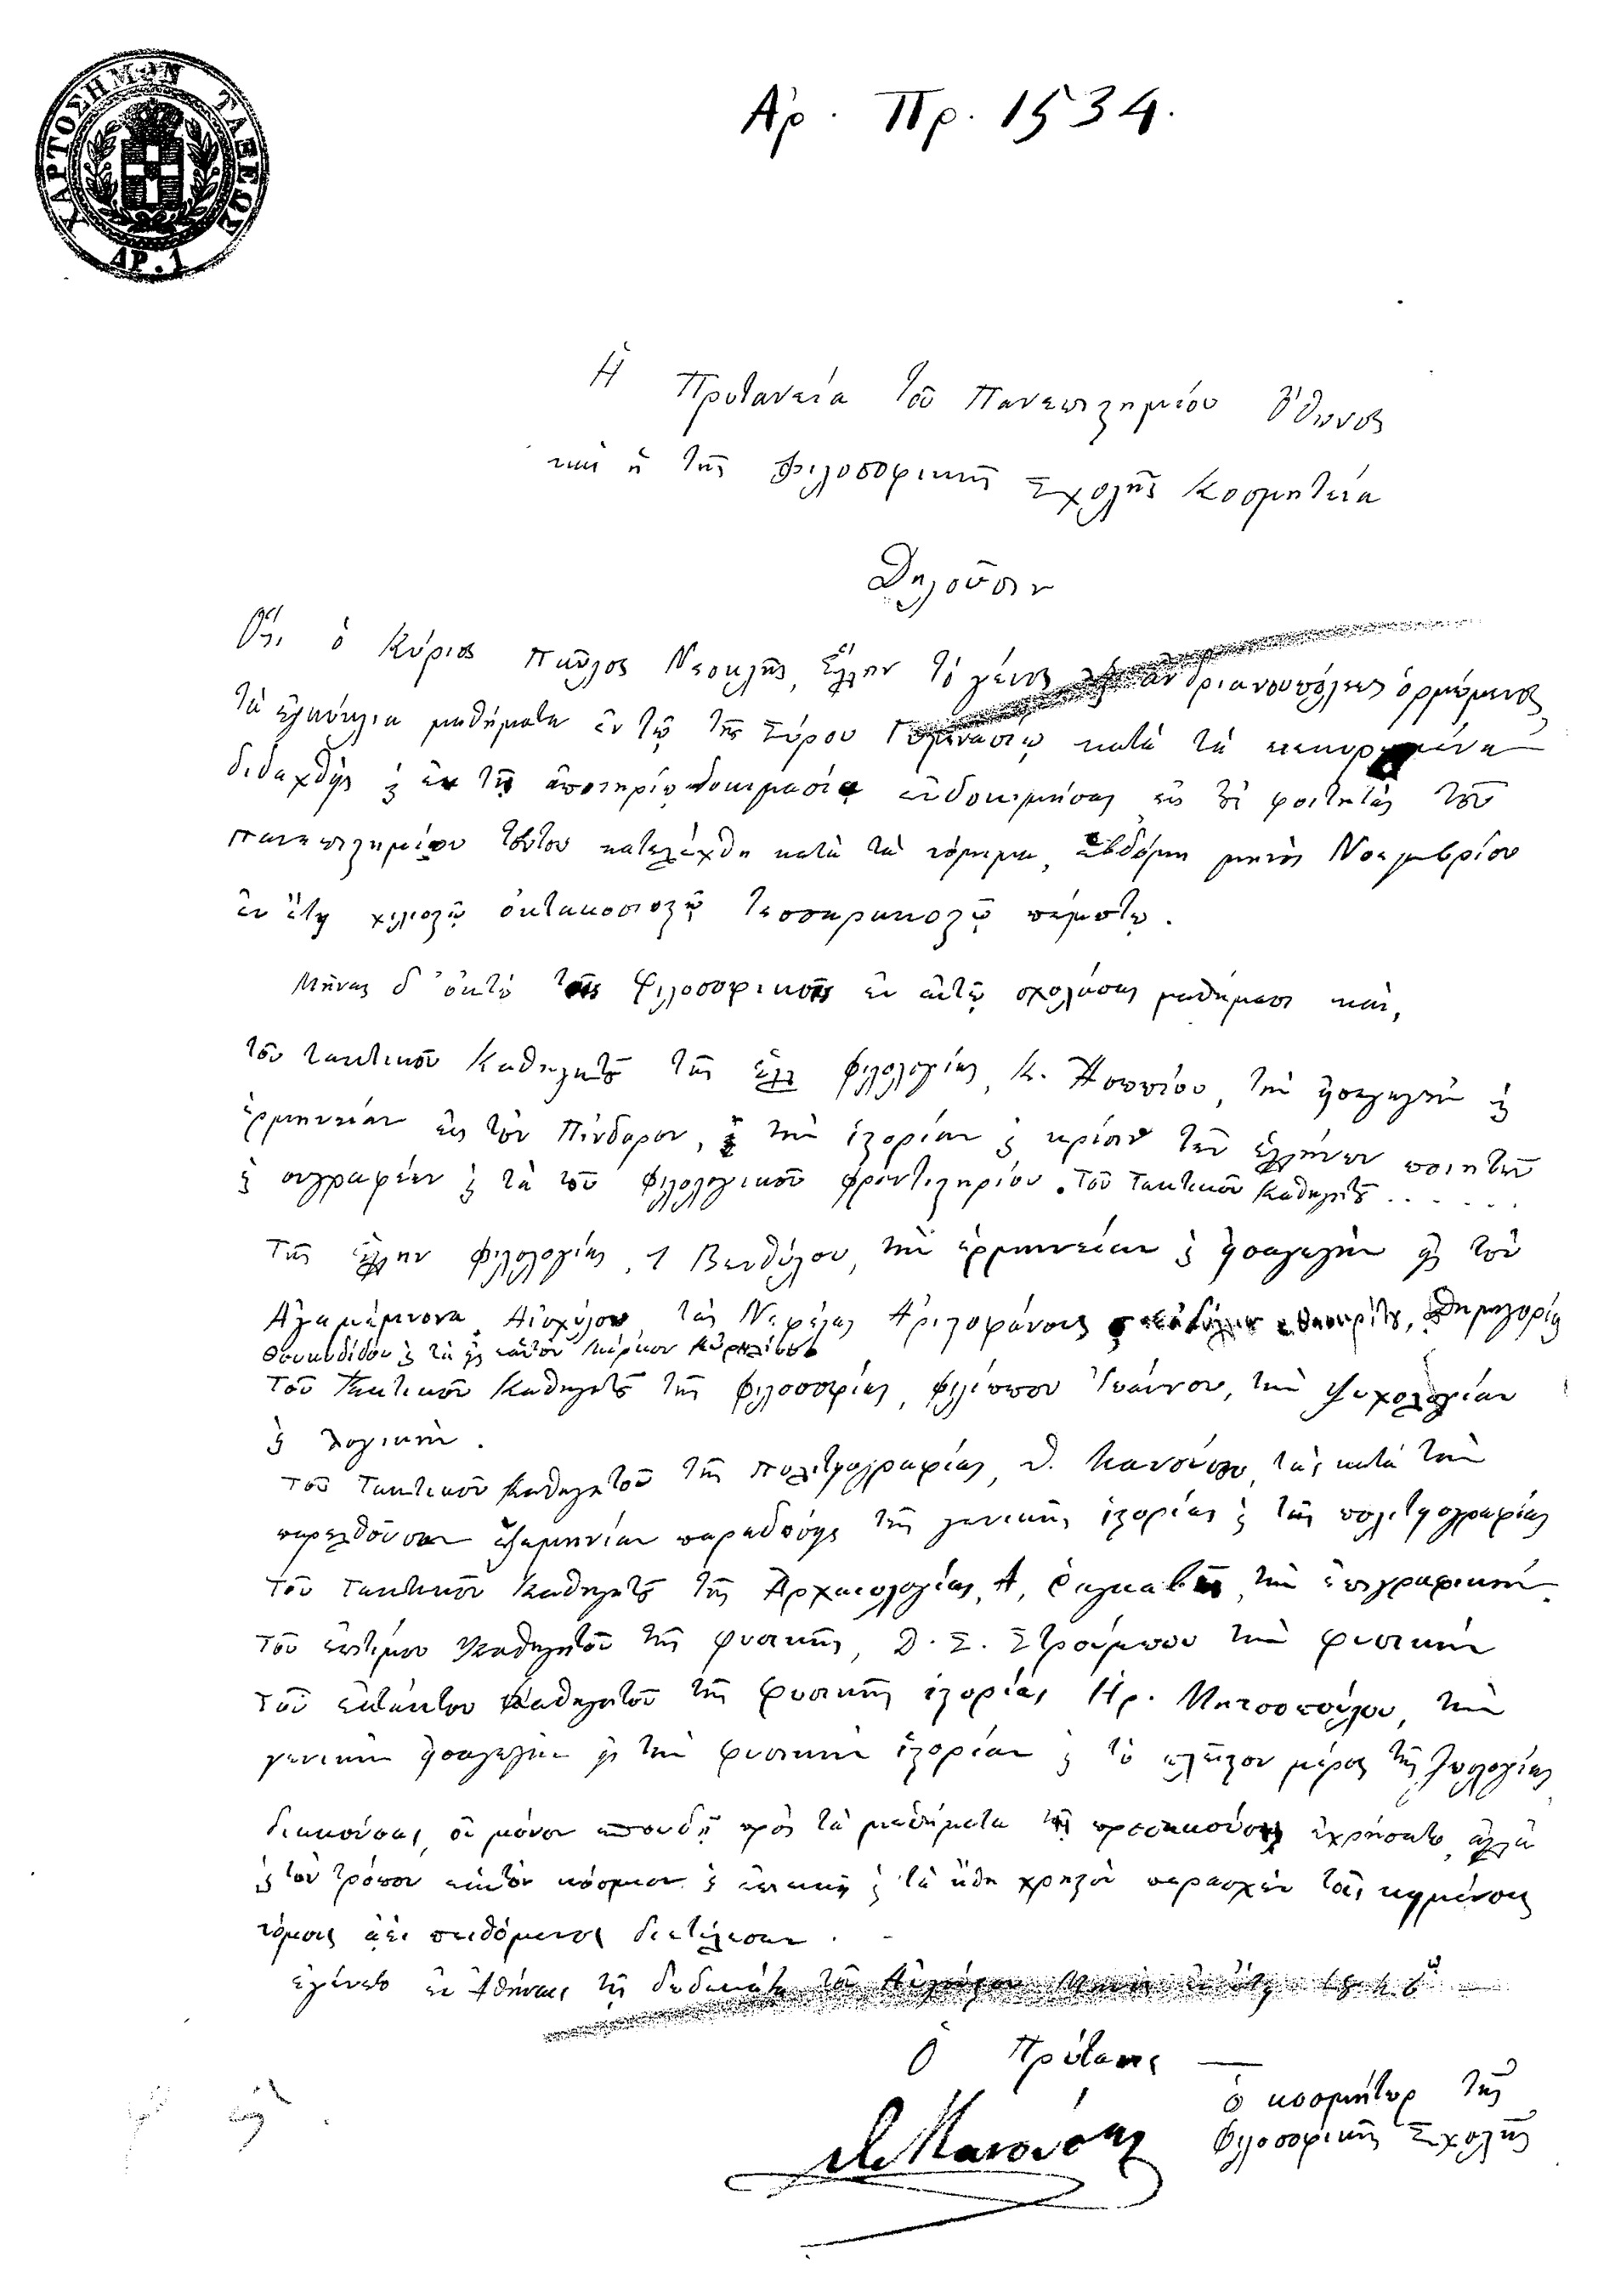 ΧΑΡΤΟΣΗΜΟΝ ΤΑΞΕΩΣ
ΑΡ. 1
Ἀρ. Πρ. 1534.
Ἡ Πρυτανεία τοῦ Πανεπιστημίου Ὄθωνος
καὶ ἡ τῆς Φιλοσοφικῆς Σχολῆς Κοσμητεία
Δηλοῦσιν
Ὅτι ὁ Κύριος Παῦλος Νεοκλῆς, Ἕλλην τὸ γένος ἐξ Ἀνδριανουπόλεως ὁρμώμενος
τὰ ἐγκύκλια μαθήματα ἐν τῷ τῆς Σύρου Γυμνασίῳ κατὰ τὰ κεκυρωμένα
διδαχθεὶς καὶ ἐν τῇ ἀπολυτηρίῳ δοκιμασίᾳ εὐδοκιμήσας εἰς τοὺς φοιτητὰς τοῦ
Πανεπιστημίου τούτου κατελέχθη κατὰ τὰ νόμιμα, ἑβδόμῃ μηνὸς Νοεμβρίου
ἐν ἔτει χιλιοστῷ ὀκτακοσιοστῷ τεσσαρακοστῷ πέμπτῳ.
Μῆνας δ' ὀκτὼ τοῖς Φιλοσοφικοῖς ἐν αὐτῷ σχολάσας μαθήμασι καὶ,
τοῦ τακτικοῦ Καθηγητοῦ τῆς ἑλλ φιλολογίας, Κ. Ἀσωπίου, τὴν εἰσαγωγὴν καὶ
ἑρμηνείαν εἰς τὸν Πίνδαρον, καὶ τὴν ἱστορίαν καὶ κρίσιν τῶν ἑλλήνων ποιητῶν
καὶ συγραφέων καὶ τὰ τοῦ φιλολογικοῦ φροντιστηρίου. τοῦ τακτικοῦ Καθηγητοῦ . . . . . .
τῆς ἑλλην φιλολογίας, Ἰ Βενθύλου, τὴν ἑρμηνείαν καὶ εἰσαγωγὴν εἰς τὸν
Ἀγαμέμνονα Αἰσχύλου τὰς Νεφέλας Ἀριστοφάνους Θεοκρίτου, δημηγορίας
Θουκυδίδου καὶ τὰ εἰς ἑαυτὸν Μάρκου Αὐρηλίου
τοῦ τακτικοῦ Καθηγητοῦ τῆς φιλοσοφίας, Φιλίππου Ἰωάννου, τὴν ψυχολογίαν
καὶ λογικήν.
τοῦ τακτικοῦ Καθηγητοῦ τῆς πολιτειογραφίας, Θ. Μανούσου, τὰς κατὰ τὴν
παρελθοῦσαν ἑξαμηνίαν παραδόσεις τῆς γενικῆς ἱστορίας καὶ τῆς πολιτειογραφίας
τοῦ τακτικοῦ Καθηγητοῦ τῆς Ἀρχαιολογίας, Α, Ραγκαβῆ, τὴν ἐπιγραφικήν.
τοῦ ἐπιτίμου Καθηγητοῦ τῆς φυσικῆς, Δ. Σ. Στρούμπου τὴν φυσικήν
τοῦ ἐκτάκτου Καθηγητοῦ τῆς φυσικῆς ἱστορίας Ηρ. Μητσοπούλου, τὴν
γενικὴν εἰσαγωγὴν εἰς τὴν φυσικὴν ἱστορίαν καὶ τὸ πλεῖστον μέρος τῆς ζωολογίας
διακούσας, οὐ μόνον σπουδῇ πρὸς τὰ μαθήματα τῇ προσηκούσῃ ἐχρήσατο, ἀλλὰ
καὶ τὸν τρόπον ἑαυτὸν κόσμιον καὶ ἐπιεικῆ καὶ τὰ ἤθη χρηστὸν παρασχὼν τοῖς κειμένοις
νόμοις ἀεὶ πειθόμενος διετέλεσεν.
ἐγένετο ἐν Ἀθήναις τῇ δωδεκάτῃ τοῦ Αὐγούστου Μηνὸς ἐν ἔτει
Ὁ Πρύτανις
ὁ κοσμήτωρ τῆς
Φιλοσοφικῆς Σχολῆς
Θ Μανούσης